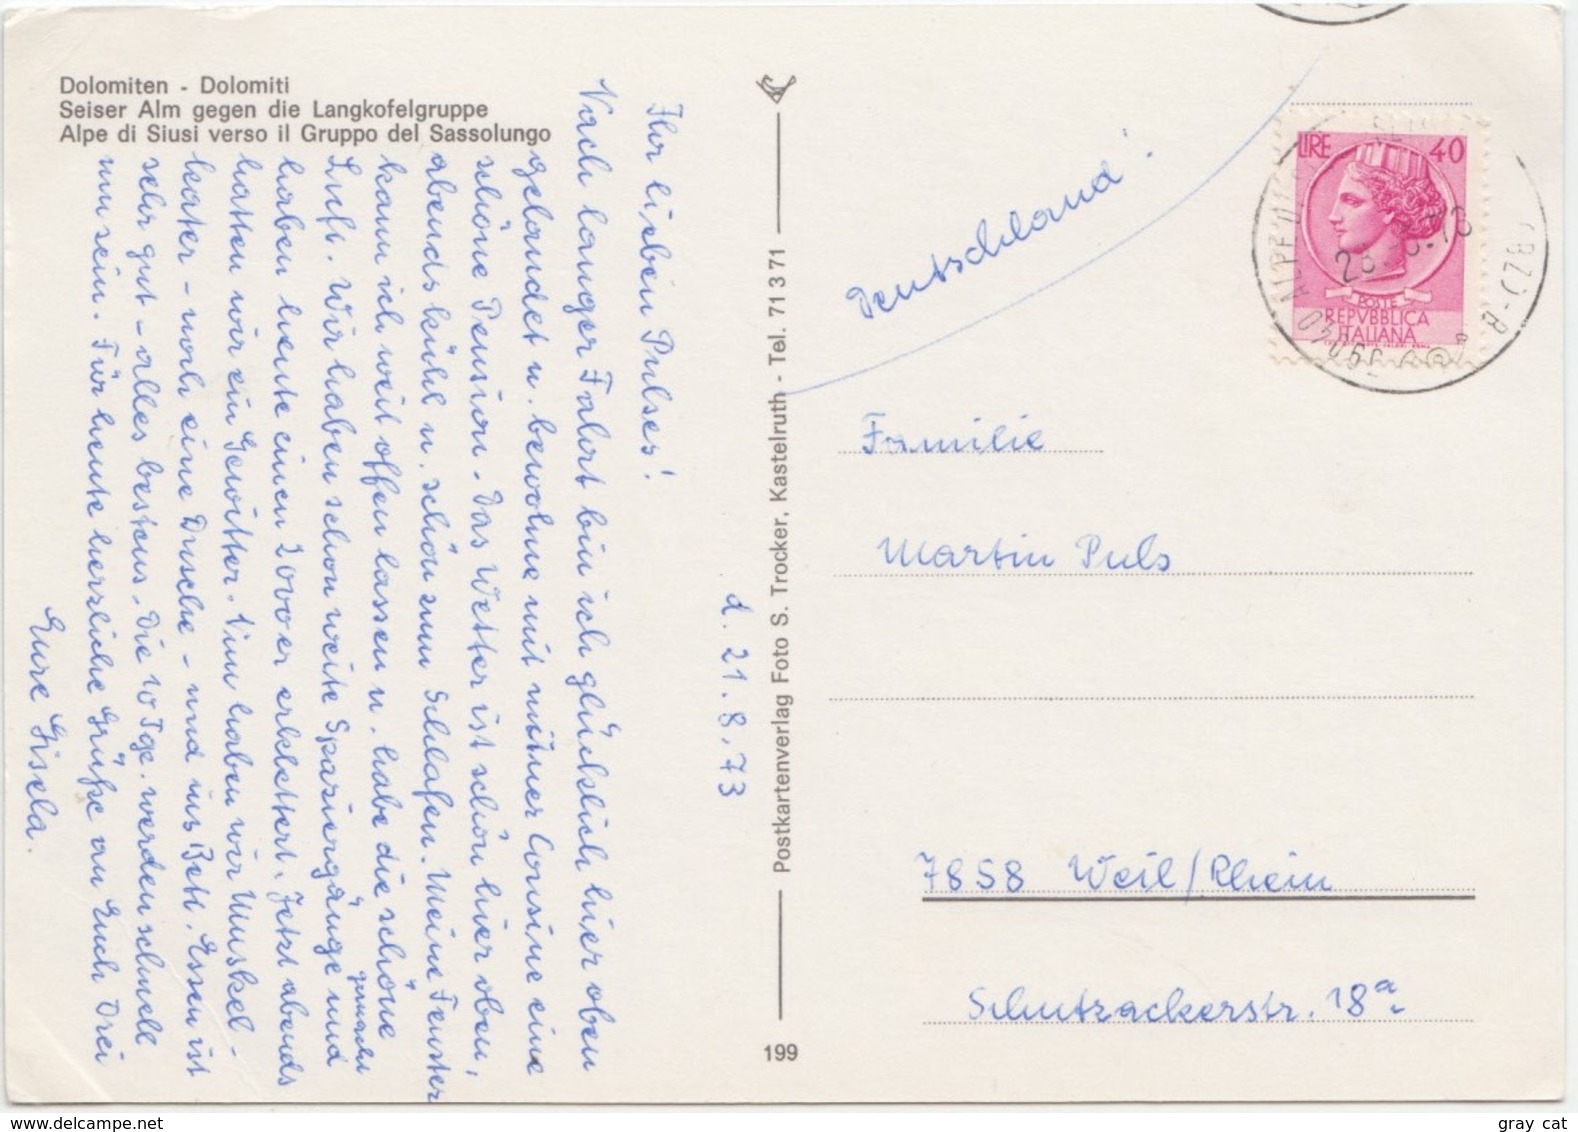 Dolomiten - Dolomiti
Seiser Alm gegen die Langkofelgruppe
Alpe di Siusi verso il Gruppo del Sassolungo
d. 21.8.73
Ihr lieben Pulses!
Nach langer Fahrt bin ich glücklich hier oben
gelandet u. bewohne mit meiner Cousine eine
schöne Pension. Das Wetter ist schön hier oben,
abends kühl u. schön zum Schlafen. Meine Fenster
kann ich weit offen lassen u. habe die schöne
Luft. Wir haben schon weite Spaziergänge gemacht und
haben heute einen 2000er erklettert. Jetzt abends
hatten wir ein Gewitter. Nun haben wir Muskel-
kater - noch eine Dusche - und ins Bett. Essen ist
sehr gut - alles bestens. Die 10 Tge. werden schnell
um sein. Für heute herzliche Grüße an Euch Drei
Eure Gisela.
Postkartenverlag Foto S. Trocker, Kastelruth - Tel. 71371
199
Deutschland!
LIRE 40
POSTE
REPVBBLICA
ITALIANA
39040 ALPE DI
(BZ) - B
Familie
Martin Puls
7858 Weil/Rhein
Schutzackerstr. 18a
gray cat